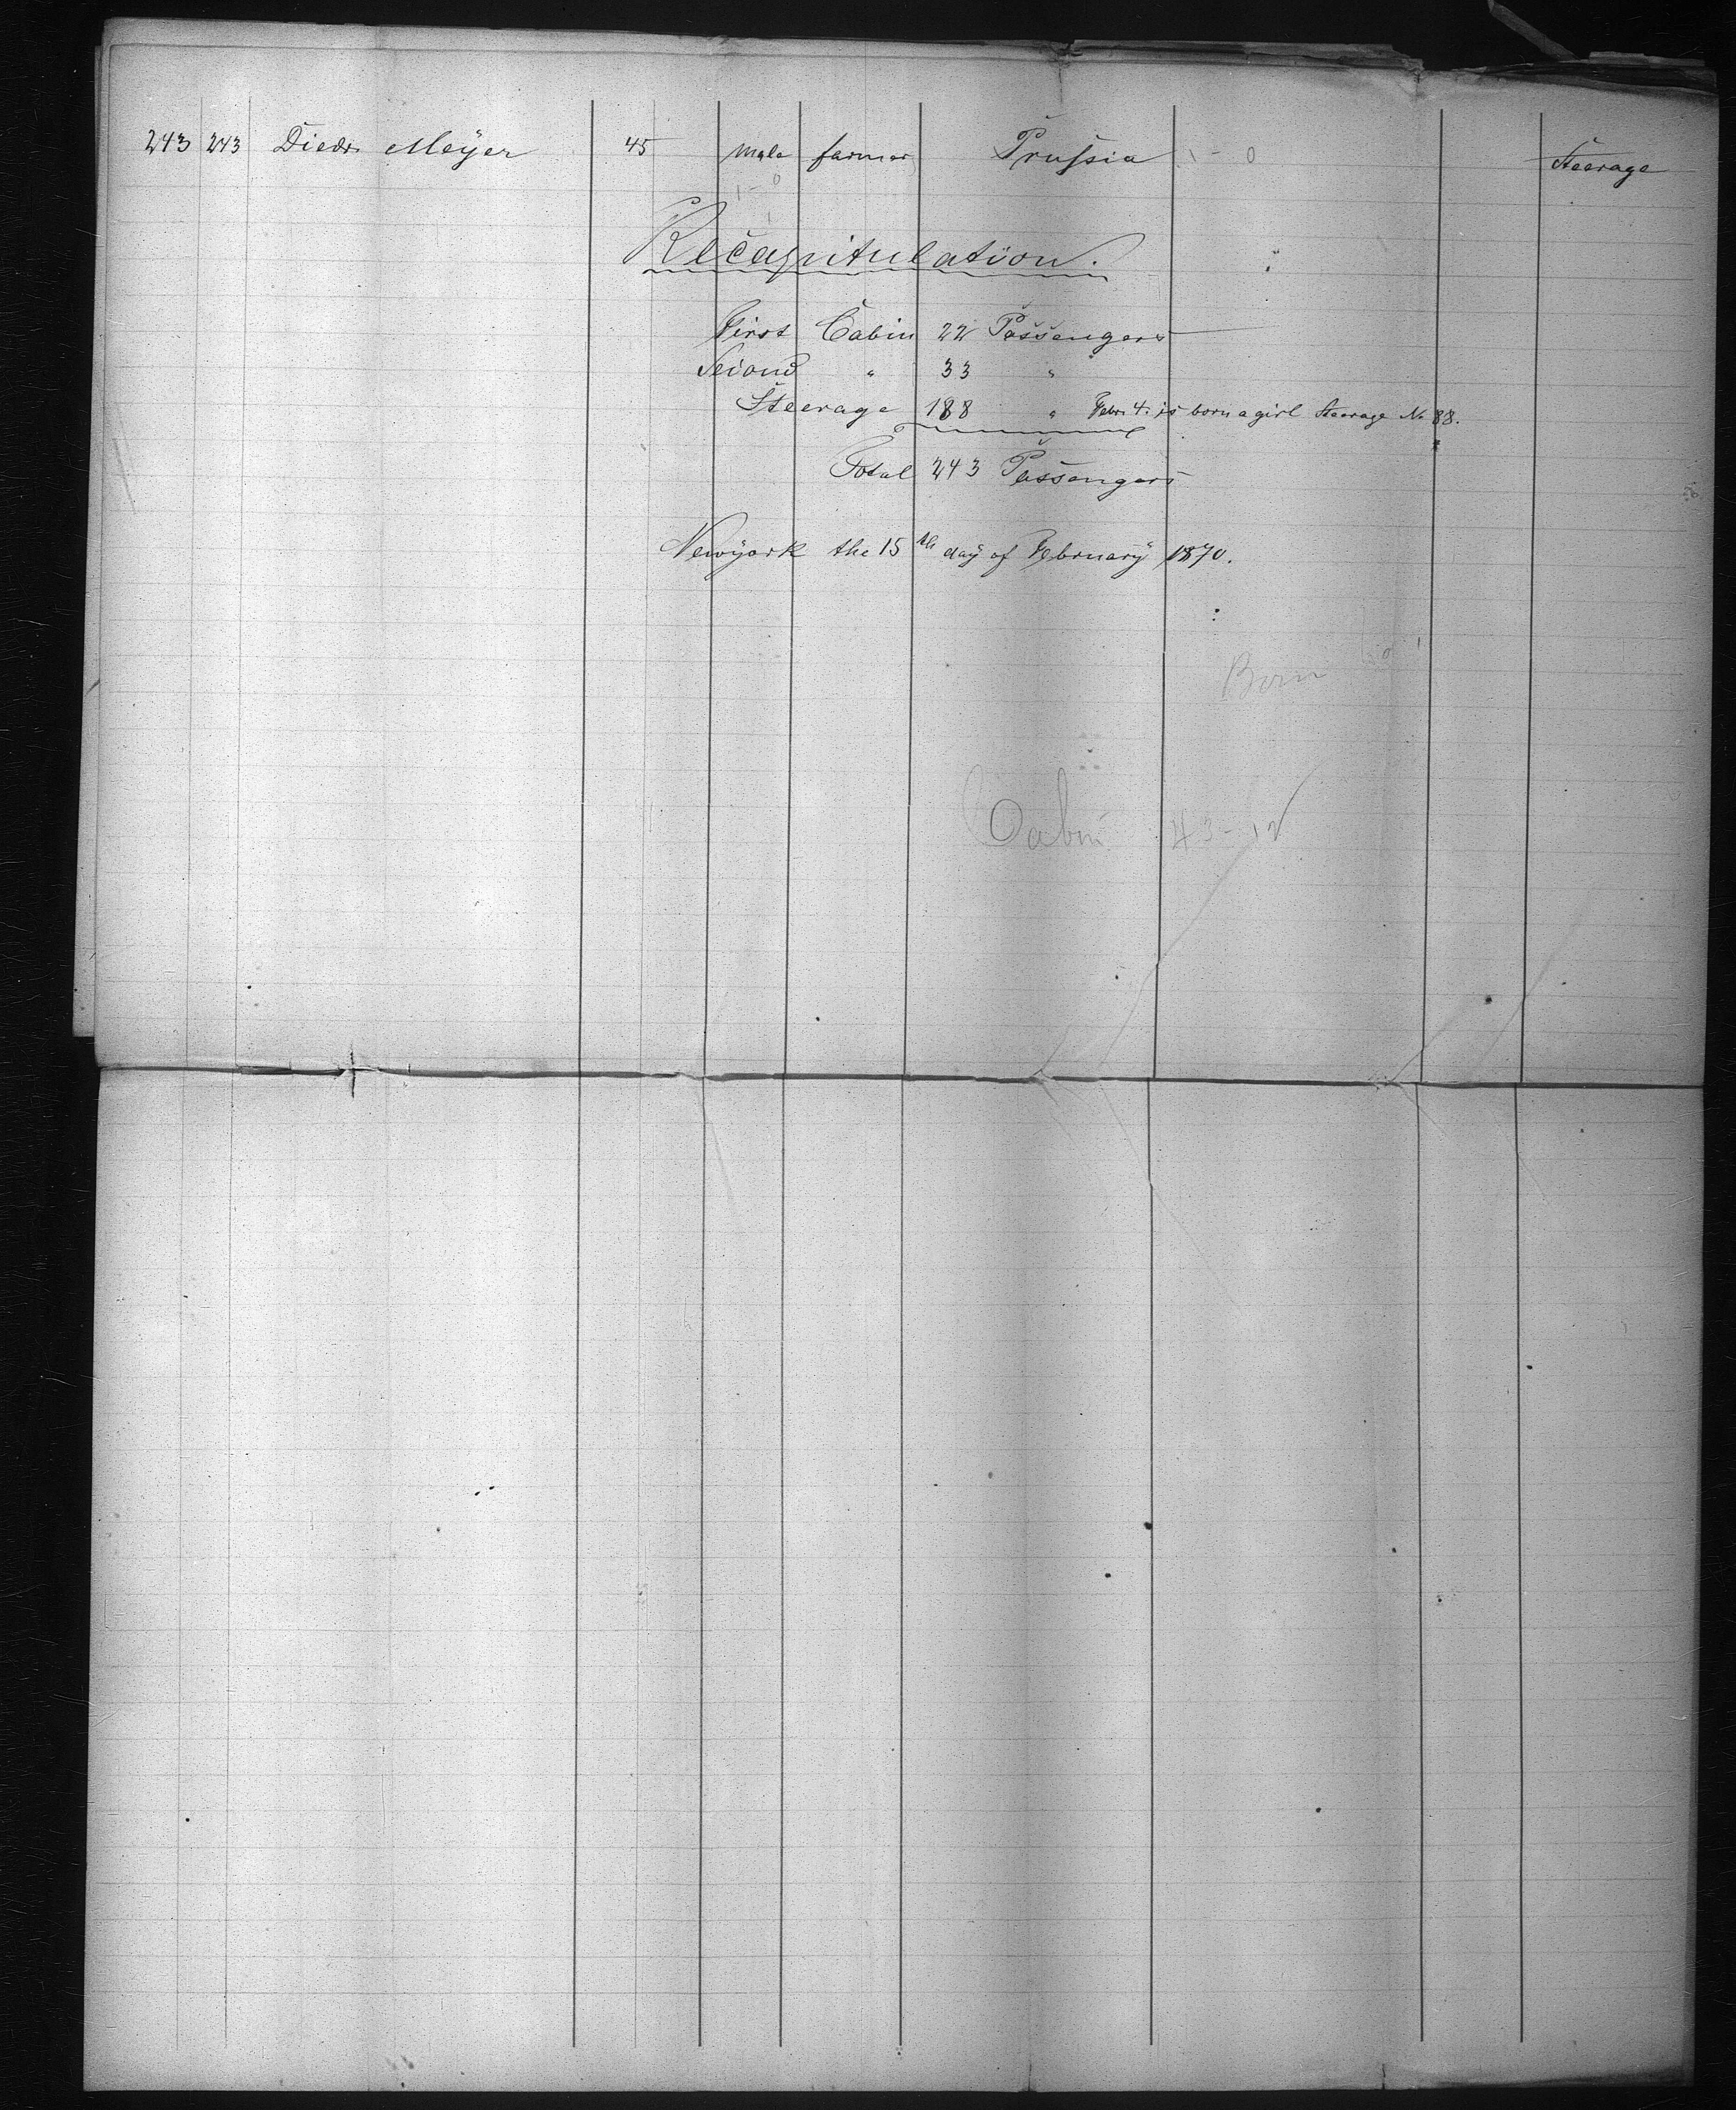 243 243 Diedr. Meÿer 45 male farmer Prussia 1 - 0 Steerage
1 - 0
Recapitulation.
First Cabin 22 Passengers
Second " 33 "
Steerage 188 " Febr. 4. is born a girl Steerage No 88.
Total 243 Passengers
Newÿork the 15th daÿ of Februarÿ 1870.
Born 0 1
Cabin 43 - 12